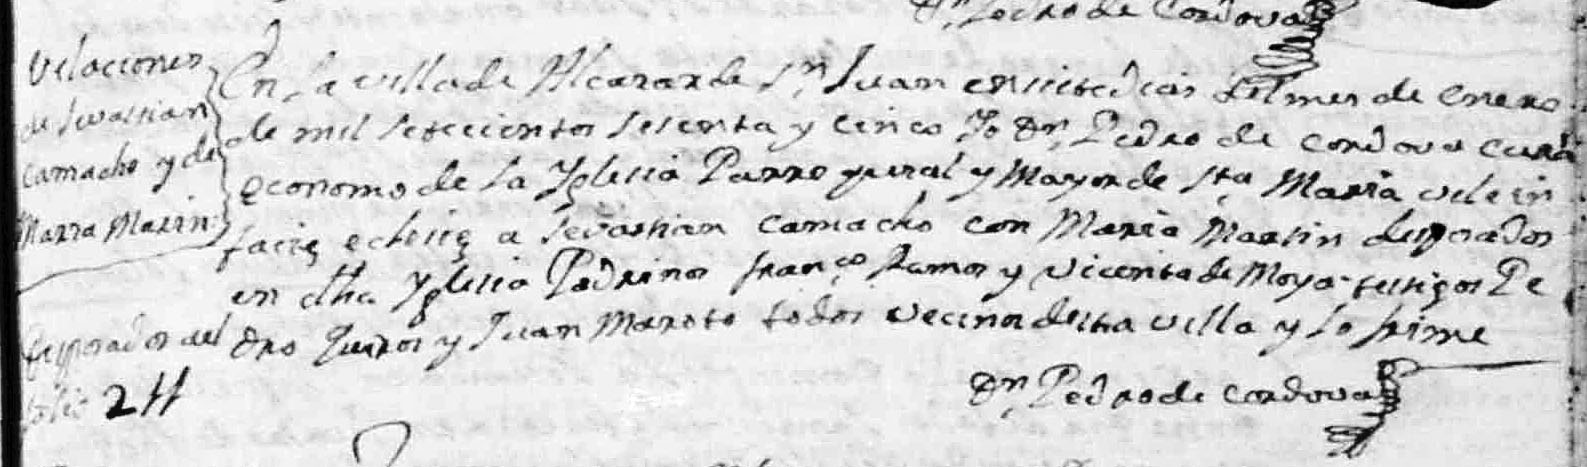 Dn Pedro de Cordova
Velaciones
de Sevastian
Camacho y de
Maria Marin
En la villa de Alcazar de Sn Juan en siete dias del mes de enero
de mil setecientos sesenta y cinco Yo Dn Pedro de Cordova cura
economo de la Yglesia Parroquial y Mayor de Sta Maria vele in
facie eclesie a Sevastian Camacho con Maria Martin desposados
en dha Yglesia Padrinos Franco Ramos y Vicenta de Moya testigos Pe
dro Quiros y Juan Maroto todos vecinos desta villa y lo firme
Dn Pedro de Cordova
desposados al
folio 211